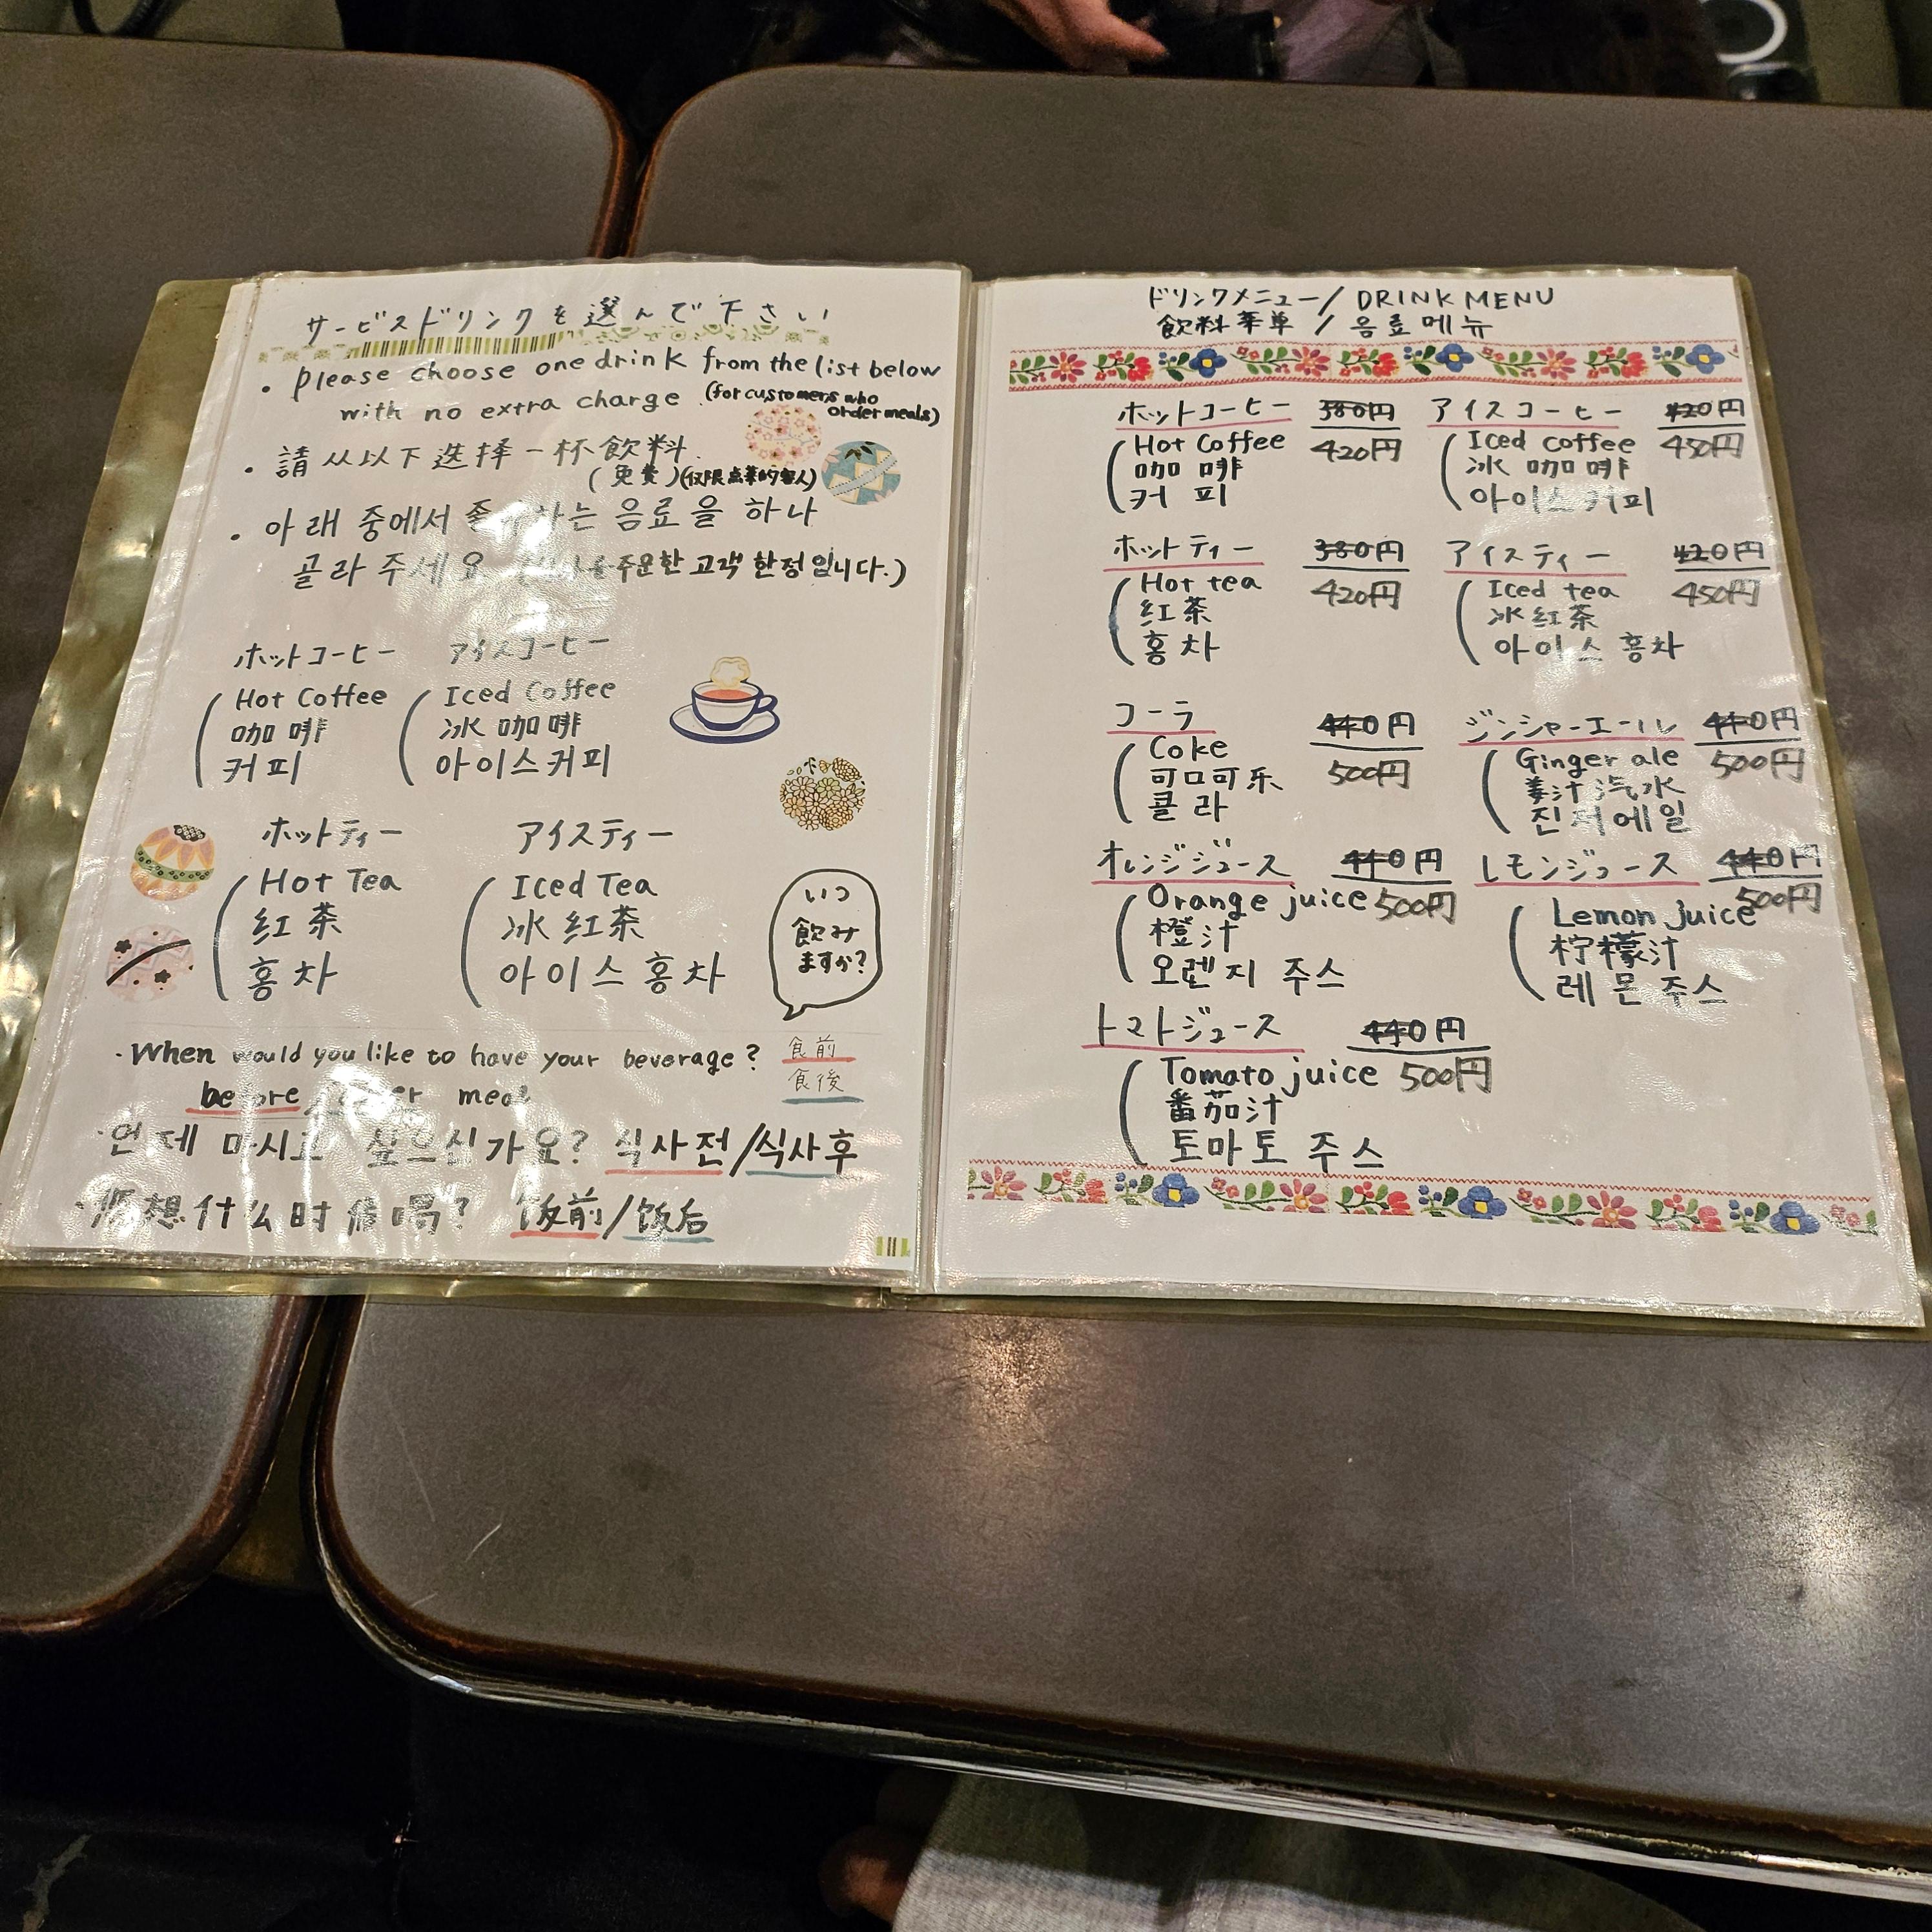 サービスドリンクを選んで下さい
• please choose one drink from the list below
with no extra charge (for customers who
order meals)
• 請从以下选择一杯飲料.
(免費)(仅限点菜的客人)
• 아래 중에서 는 음료을 하나
골라 주세요 주문한 고객 한정입니다.)
ホットコーヒー
Hot Coffee
咖啡
커피
アイスコーヒー
Iced Coffee
冰咖啡
아이스커피
ホットティー
Hot Tea
紅茶
홍차
アイスティー
Iced Tea
冰紅茶
아이스홍차
いつ
飲み
ますか?
・When would you like to have your beverage?
before meal
食前
食後
・언데 마시고 싶으신가요? 식사전/식사후
想什么时候喝? 饭前/饭后
ドリンクメニュー/DRINK MENU
飲料菜単/음료메뉴
ホットコーヒー 380円
Hot Coffee 420円
咖啡
커피
アイスコーヒー 420円
Iced coffee 450円
冰咖啡
아이스커피
ホットティー 380円
Hot tea 420円
紅茶
홍차
アイスティー 420円
Iced tea 450円
冰紅茶
아이스홍차
コーラ 440円
Coke 500円
可口可乐
콜라
ジンジャーエール 440円
Ginger ale 500円
姜汁汽水
진저에일
オレンジジュース 440円
Orange juice 500円
橙汁
오렌지 주스
レモンジュース 440円
Lemon juice 500円
柠檬汁
레몬주스
トマトジュース 440円
Tomato juice 500円
番茄汁
토마토 주스